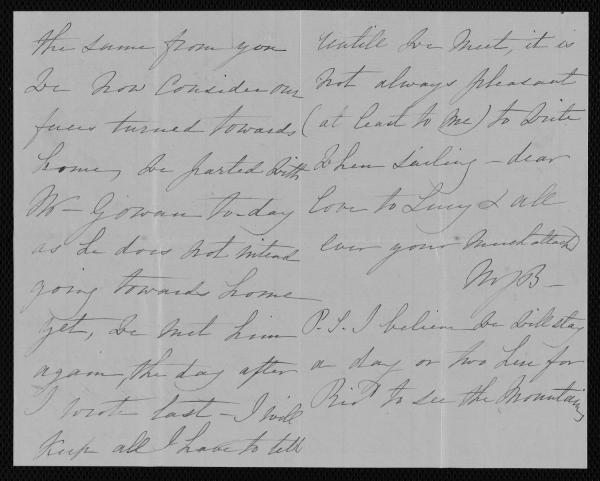 the same from you
We now consider our
faces turned towards
home, we parted with
W- Gowan to-day
as he does not intend
going towards home
yet, we met him
again, the day after
I wrote last - I will
keep all I have to tell
untill we meet, it is
not always pleasant
(at least to me) to write
when sailing - dear
love to Lucy & all
ever your much attachd
MJB-
P.S. I believe we will stay
a day or two here for
Richd to see the Mountains